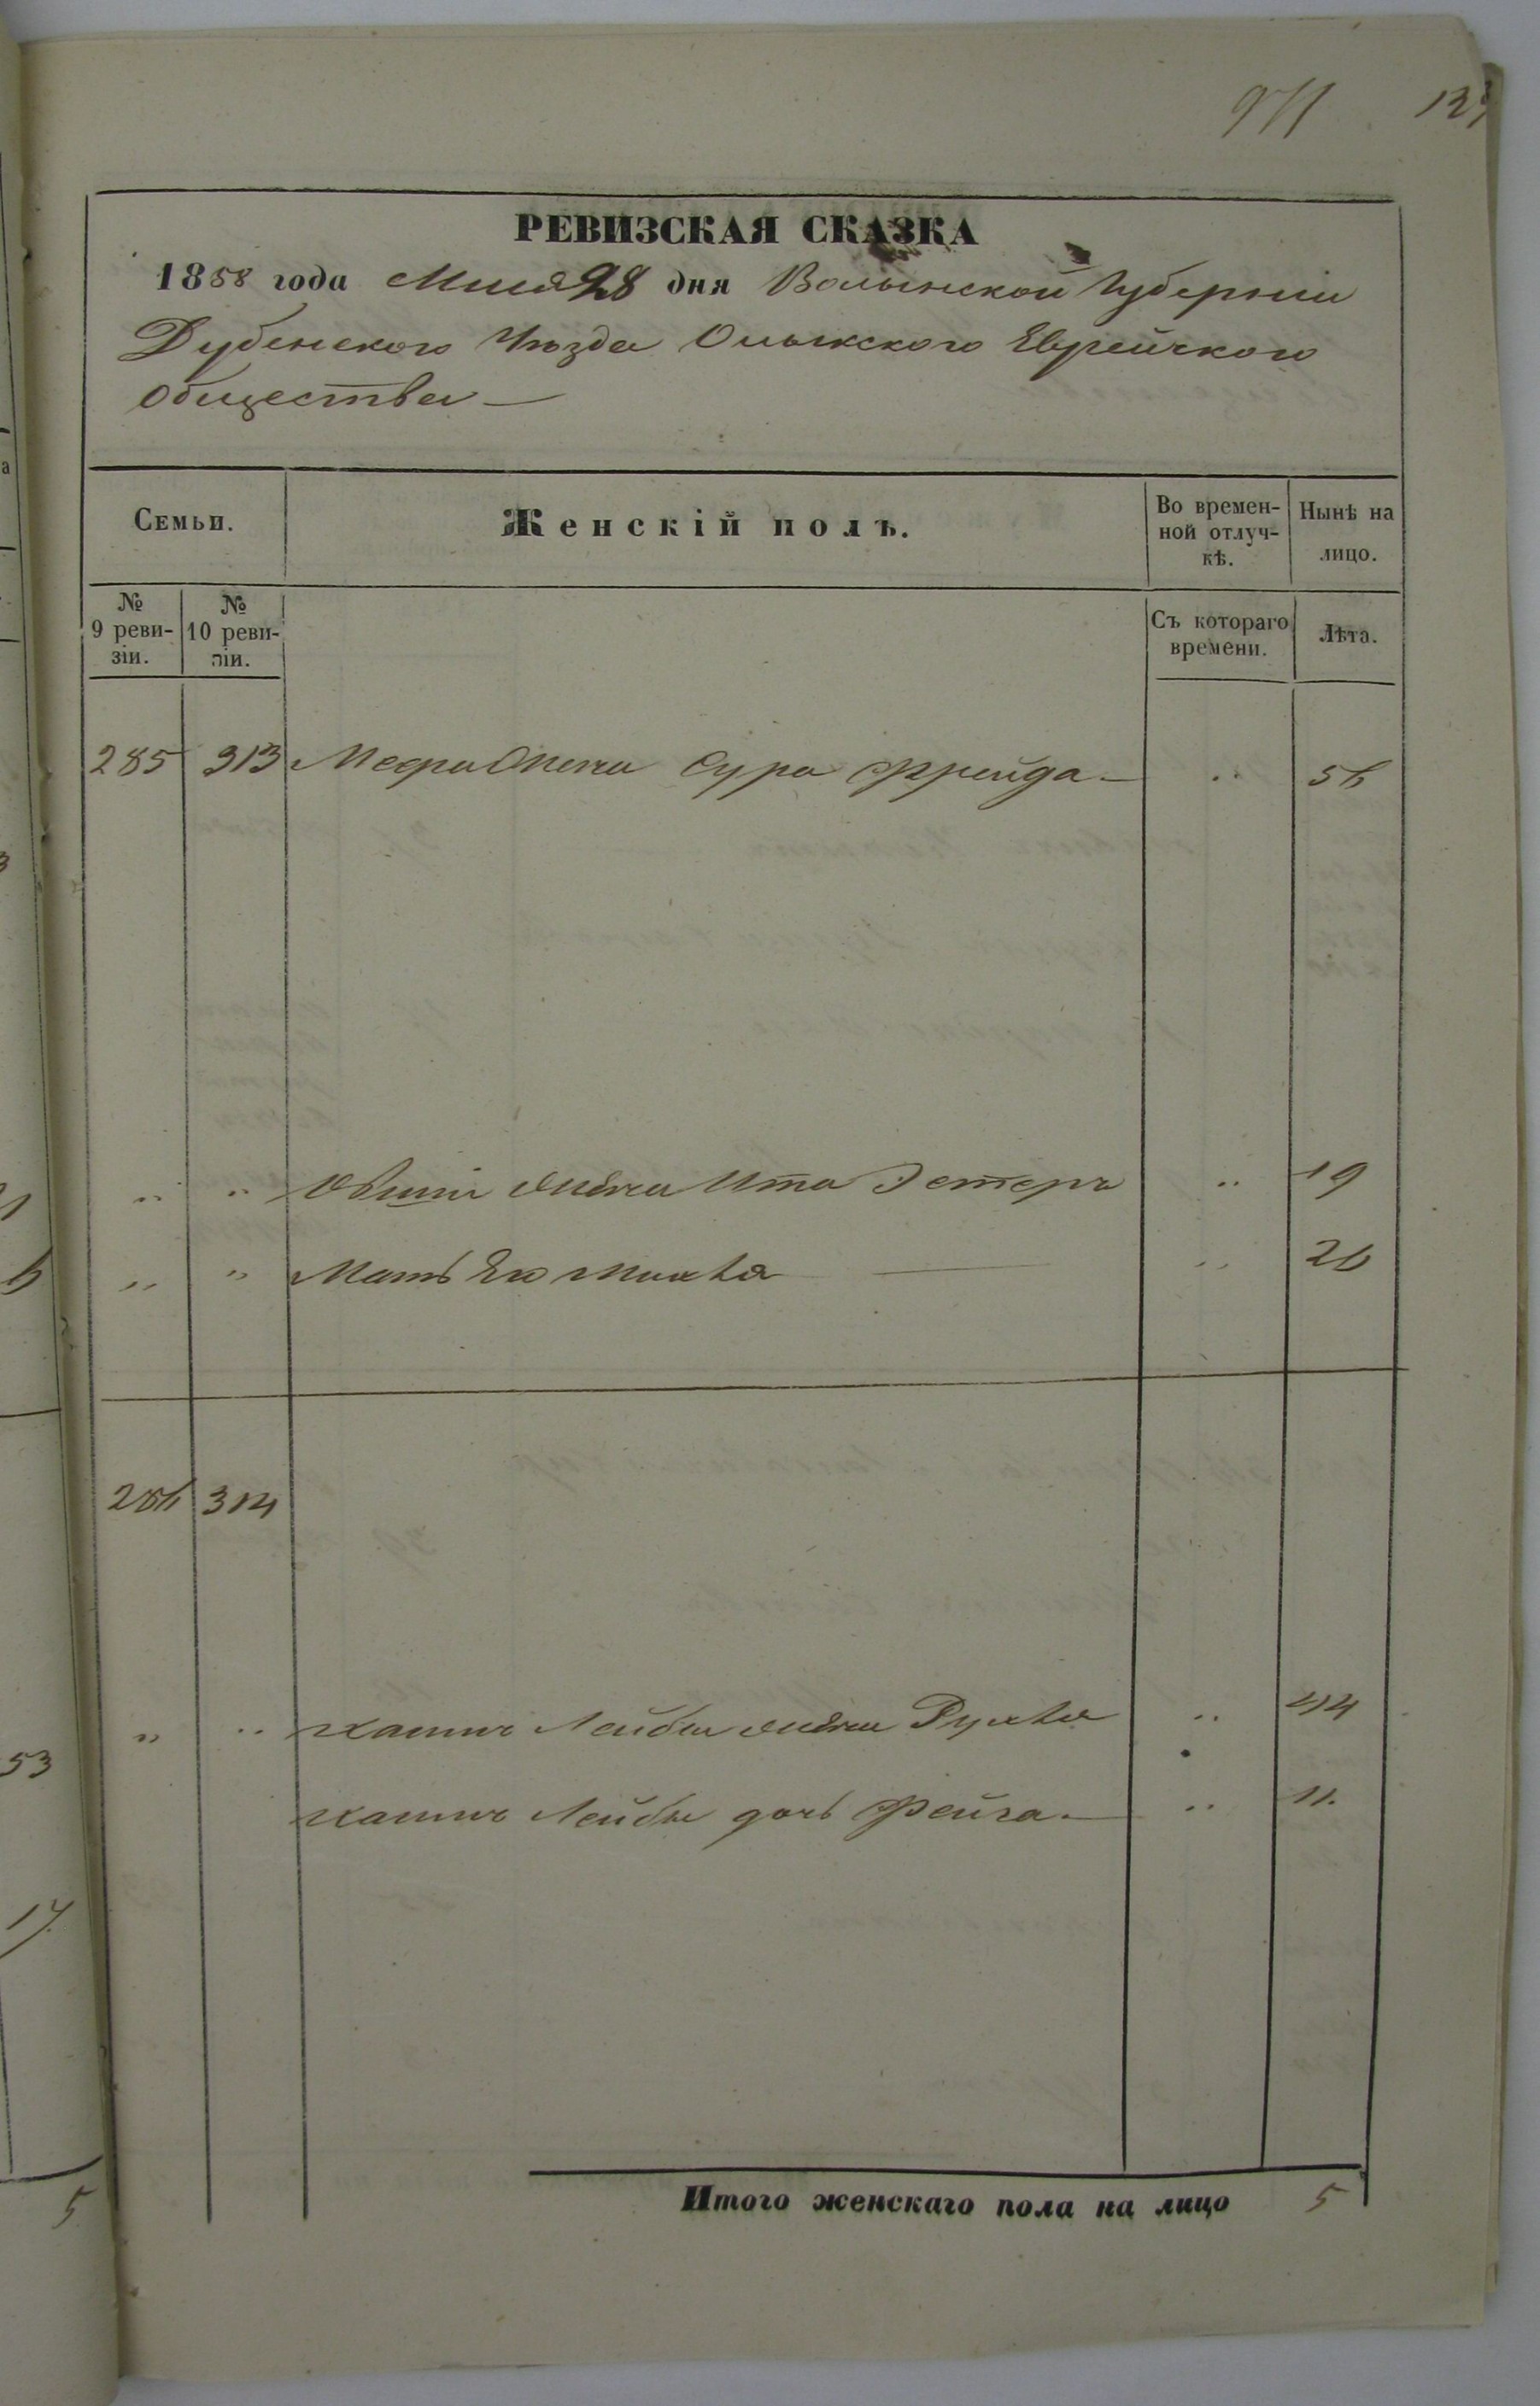 971 12
РЕВИЗСКАЯ СКАЗКА
1858 года 28 дня Волынской Губерніи
Дубенского Уѣзда Олыкского Еврейского
Общества —
Семьи. Женскій полъ. Во времен-ной отлуч-кѣ. Нынѣ на лицо.
№ 9 реви-зіи. № 10 реви-зіи. Съ котораго времени. Лѣта.
285 313 жена Сура Фрейда — „ 56
„ „ жена Ита Эстеръ „ 19
„ „ Мать Ея „ 26
286 314
„ „ Лейбы жена Рухля „ 44
Лейбы дочь Фейга — „ 11.
Итого женскаго пола на лицо 5
53
17
5